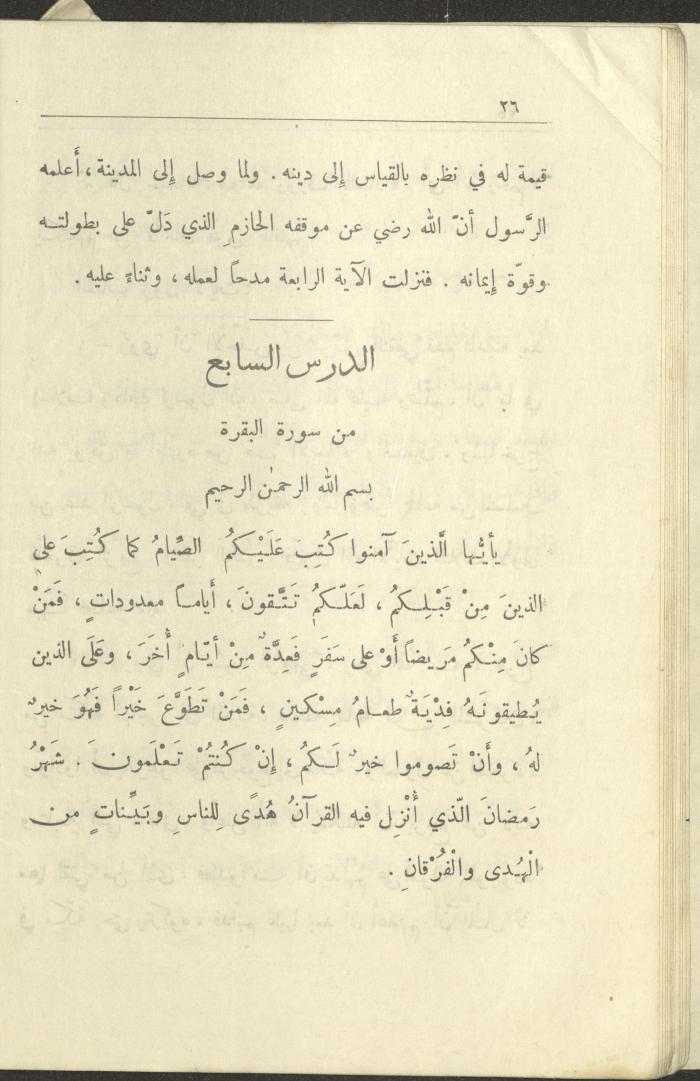 ٢٦
قيمة له في نظره بالقياس إِلى دينه . ولما وصل إِلى المدينة ، أَعلمه
الرَّسول أنّ الله رضي عن موقفه الحازمِ الذي دَلّ على بطولتـه
وقوّة إِيمانه . فنزلت الآية الرابعة مدحاً لعمله ، وثناءً عليه .
الدرس السابع
من سورة البقرة
بسم الله الرحمٰن الرحيم
يأيُّها الَّذينَ آمنوا كُتِبَ عَلَيْكُمُ الصِّيامُ كما كُتِبَ على
الذينَ مِنْ قَبْلِـكُمُ ، لَعَلّـكُمُ تَتَّقونَ ، أَيامـاً معدوداتٍ ، فَمَنْ
كانَ مِنْكُمُ مَريضاً أَوْ على سَفَرٍ فَعِدَّةٌ مِنْ أيّامٍ أُخَرَ ، وعَلَى الذين
يُطيقونَـهُ فِدْيَةٌ طعـامُ مِسْكـينٍ ، فَمَنْ تَطَوَّعَ خَيْراً فَهُوَ خيرٌ
لهُ ، وأَنْ تَصوموا خيرٌ لَـكُمُ ، إِنْ كُنتُمْ تَعْلَمونَ . شَهْرُ
رَمضانَ الّذي أُنْزِل فيه القرآنُ هُدًى لِلناسِ وبَيِّناتٍ من
الْهُدى والْفُرْقانِ .